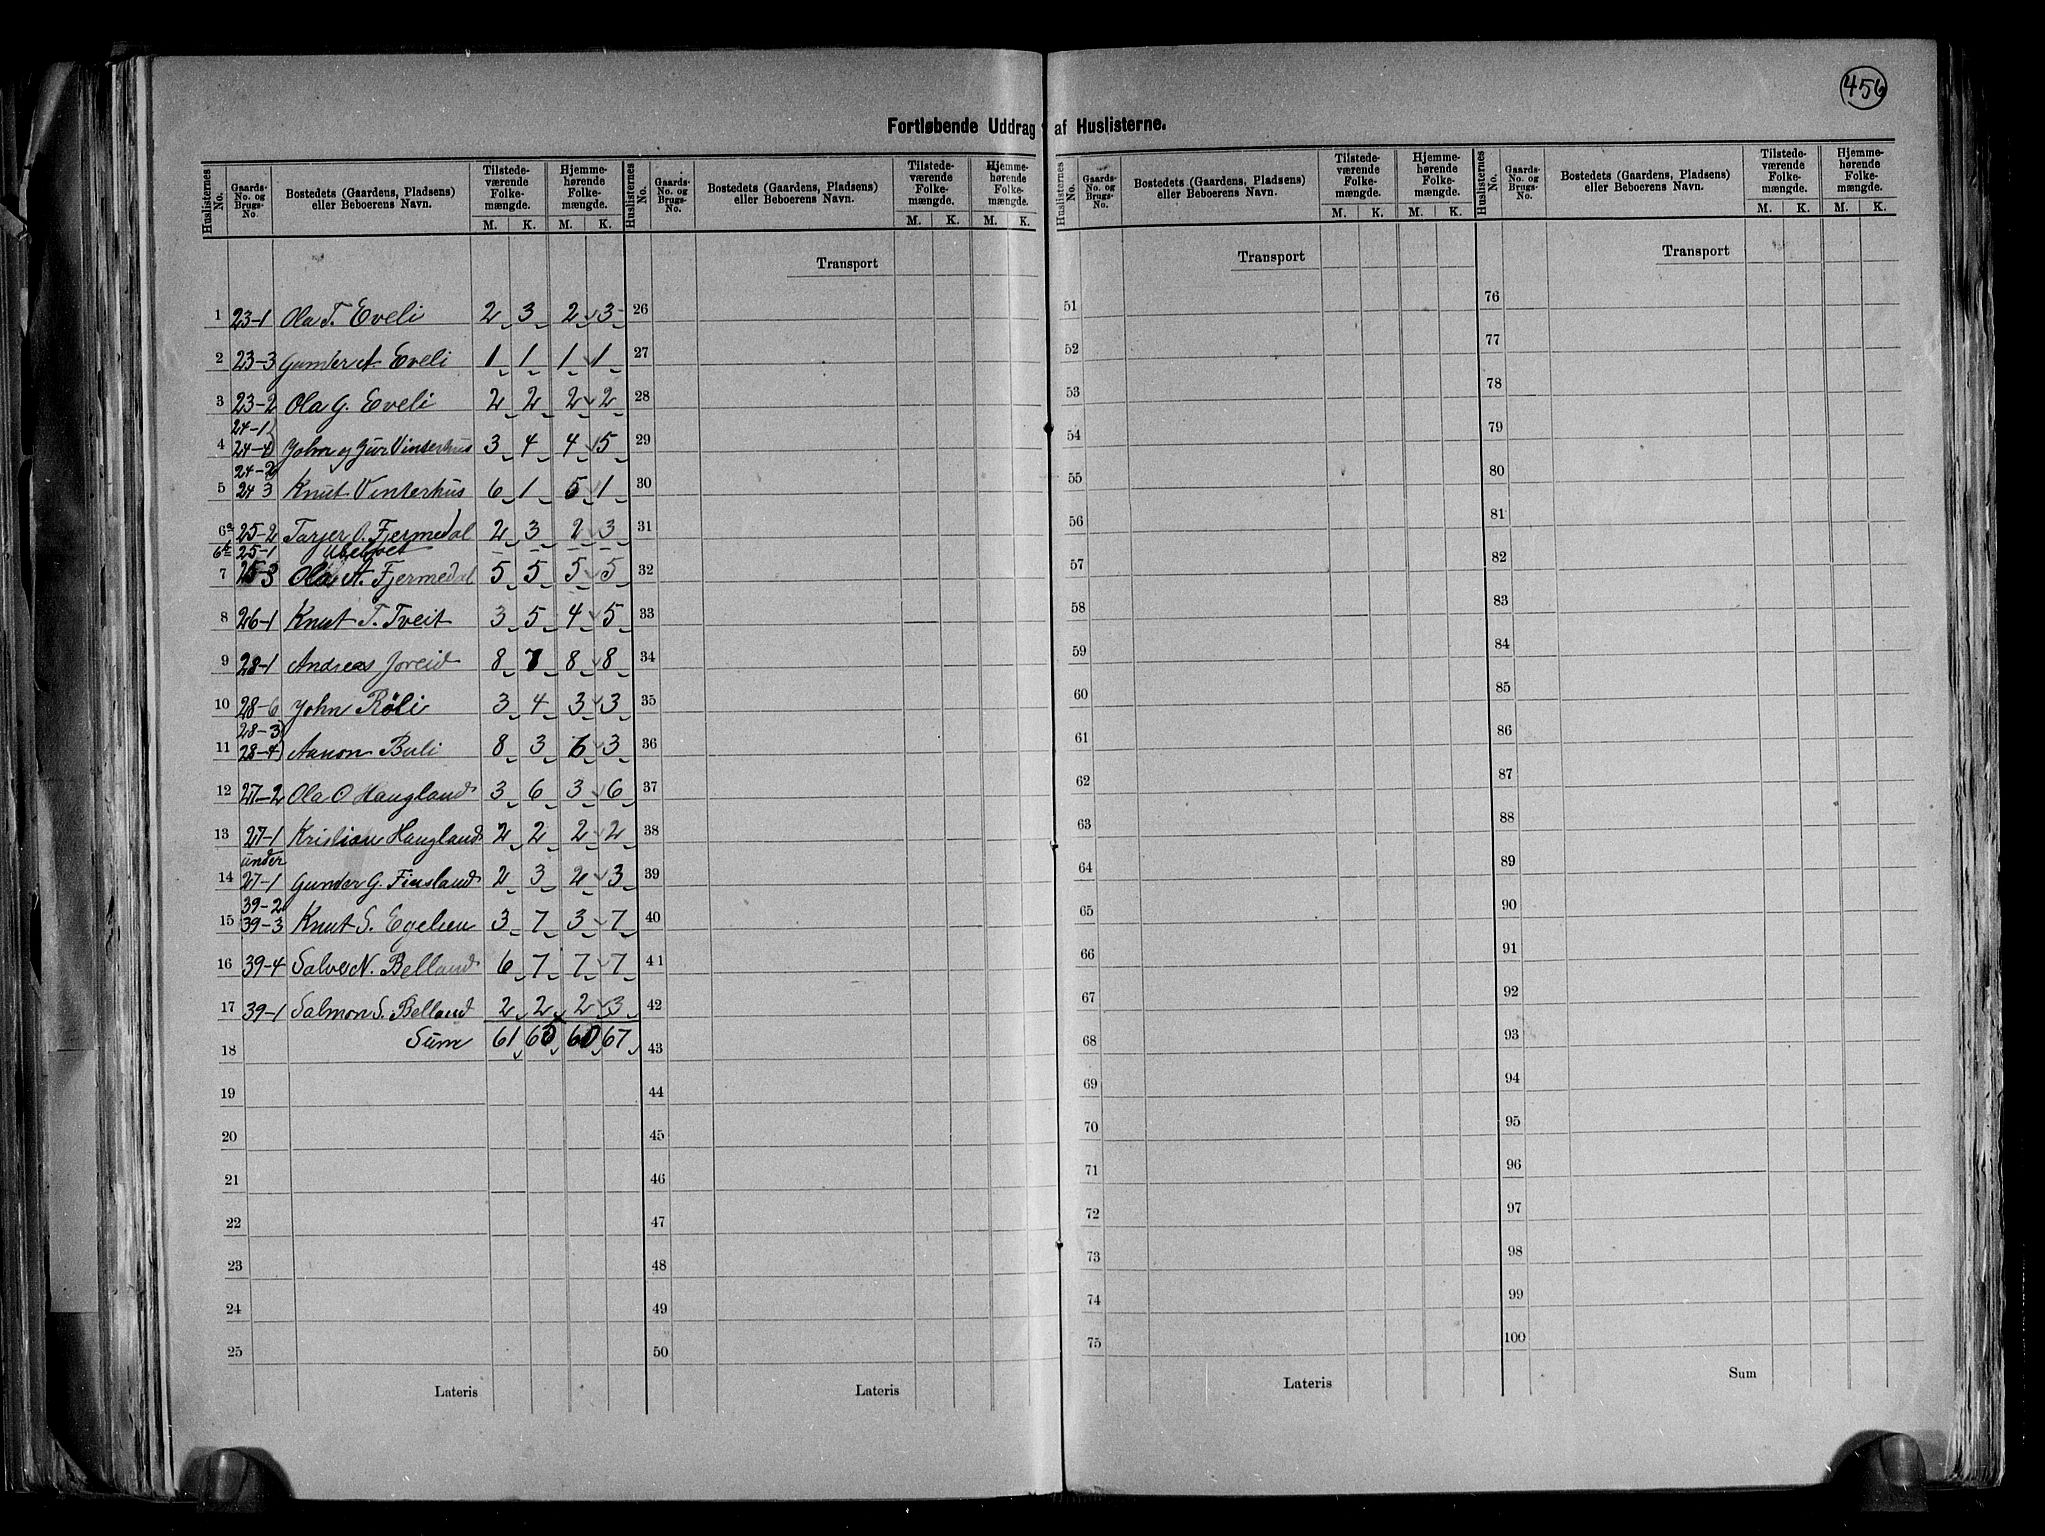 456
Fortløbende Uddrag af Huslisterne.
Huslisternes No. Gaards-No. og Brugs-No. Bostedets (Gaardens, Pladsens) eller Beboerens Navn. Tilstedeværende Folkemængde. M. K. Hjemmehørende Folkemængde. M. K.
Huslisternes No. Gaards-No. og Brugs-No. Bostedets (Gaardens, Pladsens) eller Beboerens Navn. Tilstedeværende Folkemængde. M. K. Hjemmehørende Folkemængde. M. K.
Huslisternes No. Gaards-No. og Brugs-No. Bostedets (Gaardens, Pladsens) eller Beboerens Navn. Tilstedeværende Folkemængde. M. K. Hjemmehørende Folkemængde. M. K.
Huslisternes No. Gaards-No. og Brugs-No. Bostedets (Gaardens, Pladsens) eller Beboerens Navn. Tilstedeværende Folkemængde. M. K. Hjemmehørende Folkemængde. M. K.
1 23-1 Ola T. Eveli 2 3 2 3
2 23-3 Gunder A Eveli 1 1 1 1
3 23-2 Ola G. Eveli 2 2 2 2
24-1
4 24-4 John og Gur Vinterhus 3 4 4 5
24-2
5 24 3 Knut Vinterhus 6 1 5 1
6a 25-2 Tarjer O. Fjermedal 2 3 2 3
6b 25-1 Ubeboet - - - -
7 25-3 Ola A. Fjermedal 5 5 5 5
8 26-1 Knut T. Tveit 3 5 4 5
9 28-1 Andreas Joreid 8 7 8 8
10 28-6 John Røli 3 4 3 3
28-3
11 28-4 Aanon Buli 8 3 6 3
12 27-2 Ola O Haugland 3 6 3 6
13 27-1 Kristian Haugland 2 2 2 2
under
14 27-1 Gunder G. Finsland 2 3 2 3
39-2
15 39-3 Knut S. Egelien 3 7 3 7
16 39-4 Salve N. Belland 6 7 7 7
17 39-1 Salmon S. Belland 2 2 2 3
18 Sum 61 65 60 67
19
20
21
22
23
24
25
Lateris
Transport
26
27
28
29
30
31
32
33
34
35
36
37
38
39
40
41
42
43
44
45
46
47
48
49
50
Lateris
Transport
51
52
53
54
55
56
57
58
59
60
61
62
63
64
65
66
67
68
69
70
71
72
73
74
75
Lateris
Transport
76
77
78
79
80
81
82
83
84
85
86
87
88
89
90
91
92
93
94
95
96
97
98
99
100
Sum